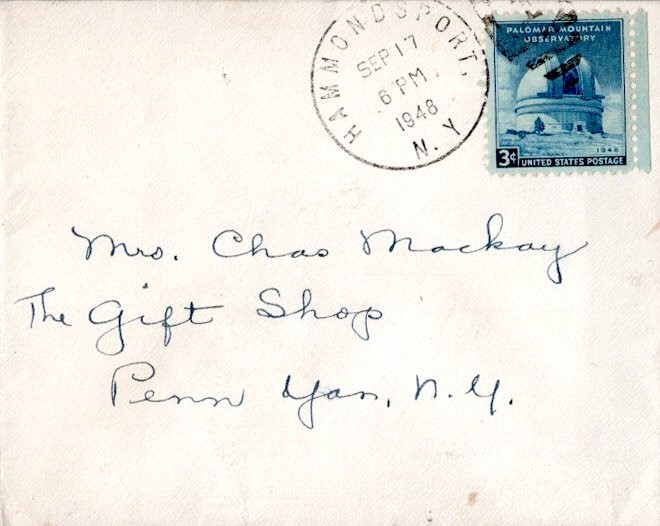 HAMMONDSPORT, N.Y.
SEP 17
6 PM
1948
PALOMAR MOUNTAIN
OBSERVATORY
1948
3¢ UNITED STATES POSTAGE
Mrs. Chas Mackay
The Gift Shop
Penn Yan, N.Y.